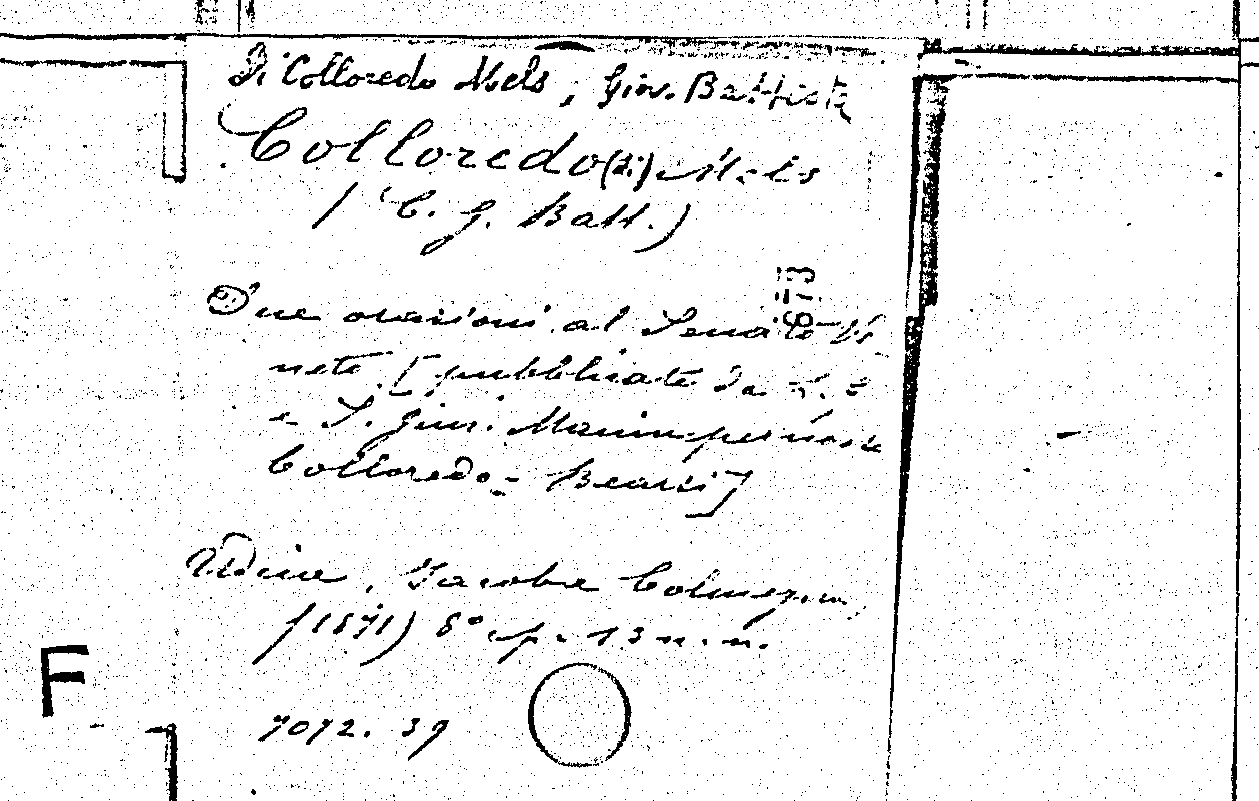 Di Colloredo Mels, Giov. Battista
Colloredo (di) Mels
(C. G. Batt.)
873
Due orazioni al Senato Ve
neto [pubblicate da L. e
e S. Giur. Manin per nozze
Colloredo - Bearzi]
Udine, Jacob e Colmegna
(1871) 8° p. 13 n. n.
F
7072. 39